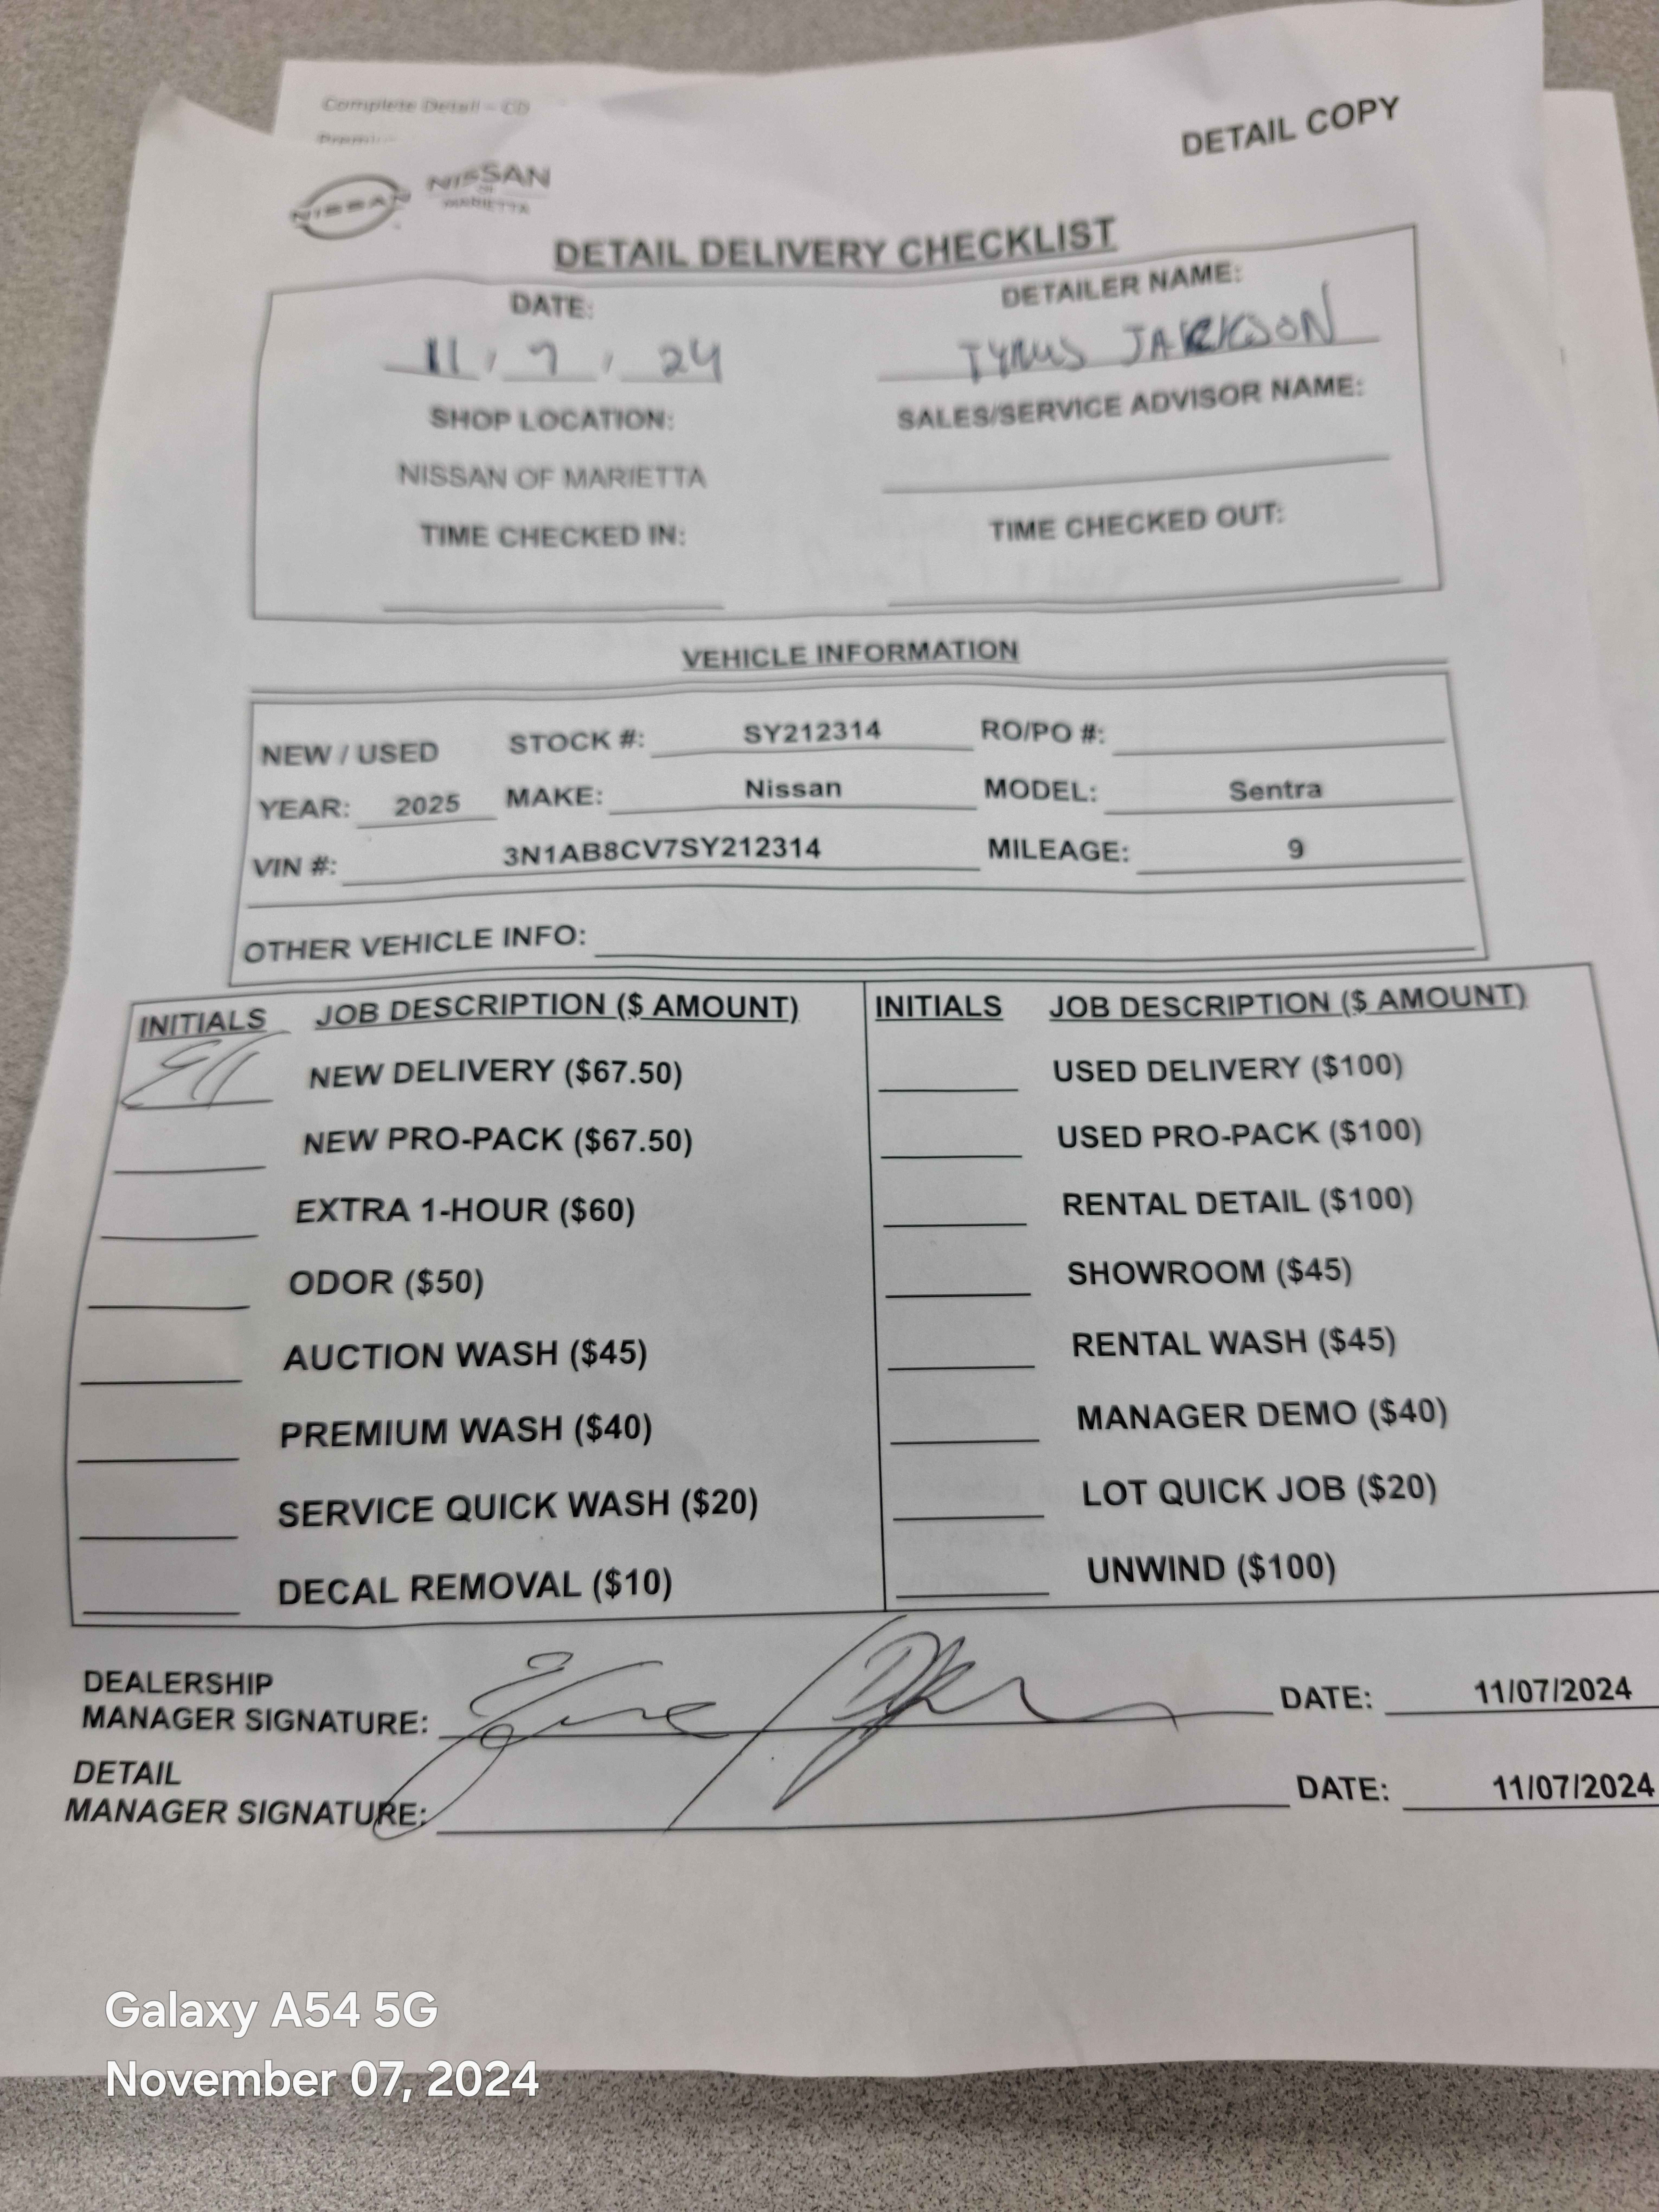 Complete Detail - CD
DETAIL COPY
NISSAN
NISSAN
OF
MARIETTA
DETAIL DELIVERY CHECKLIST
DATE: DETAILER NAME:
11 / 7 / 24 TYRUS JACKSON
SHOP LOCATION: SALES/SERVICE ADVISOR NAME:
NISSAN OF MARIETTA
TIME CHECKED IN: TIME CHECKED OUT:
VEHICLE INFORMATION
NEW / USED STOCK #: SY212314 RO/PO #:
YEAR: 2025 MAKE: Nissan MODEL: Sentra
VIN #: 3N1AB8CV7SY212314 MILEAGE: 9
OTHER VEHICLE INFO:
INITIALS JOB DESCRIPTION ($ AMOUNT) INITIALS JOB DESCRIPTION ($ AMOUNT)
NEW DELIVERY ($67.50) USED DELIVERY ($100)
NEW PRO-PACK ($67.50) USED PRO-PACK ($100)
EXTRA 1-HOUR ($60) RENTAL DETAIL ($100)
ODOR ($50) SHOWROOM ($45)
AUCTION WASH ($45) RENTAL WASH ($45)
PREMIUM WASH ($40) MANAGER DEMO ($40)
SERVICE QUICK WASH ($20) LOT QUICK JOB ($20)
DECAL REMOVAL ($10) UNWIND ($100)
DEALERSHIP
MANAGER SIGNATURE: DATE: 11/07/2024
DETAIL
MANAGER SIGNATURE: DATE: 11/07/2024
Galaxy A54 5G
November 07, 2024